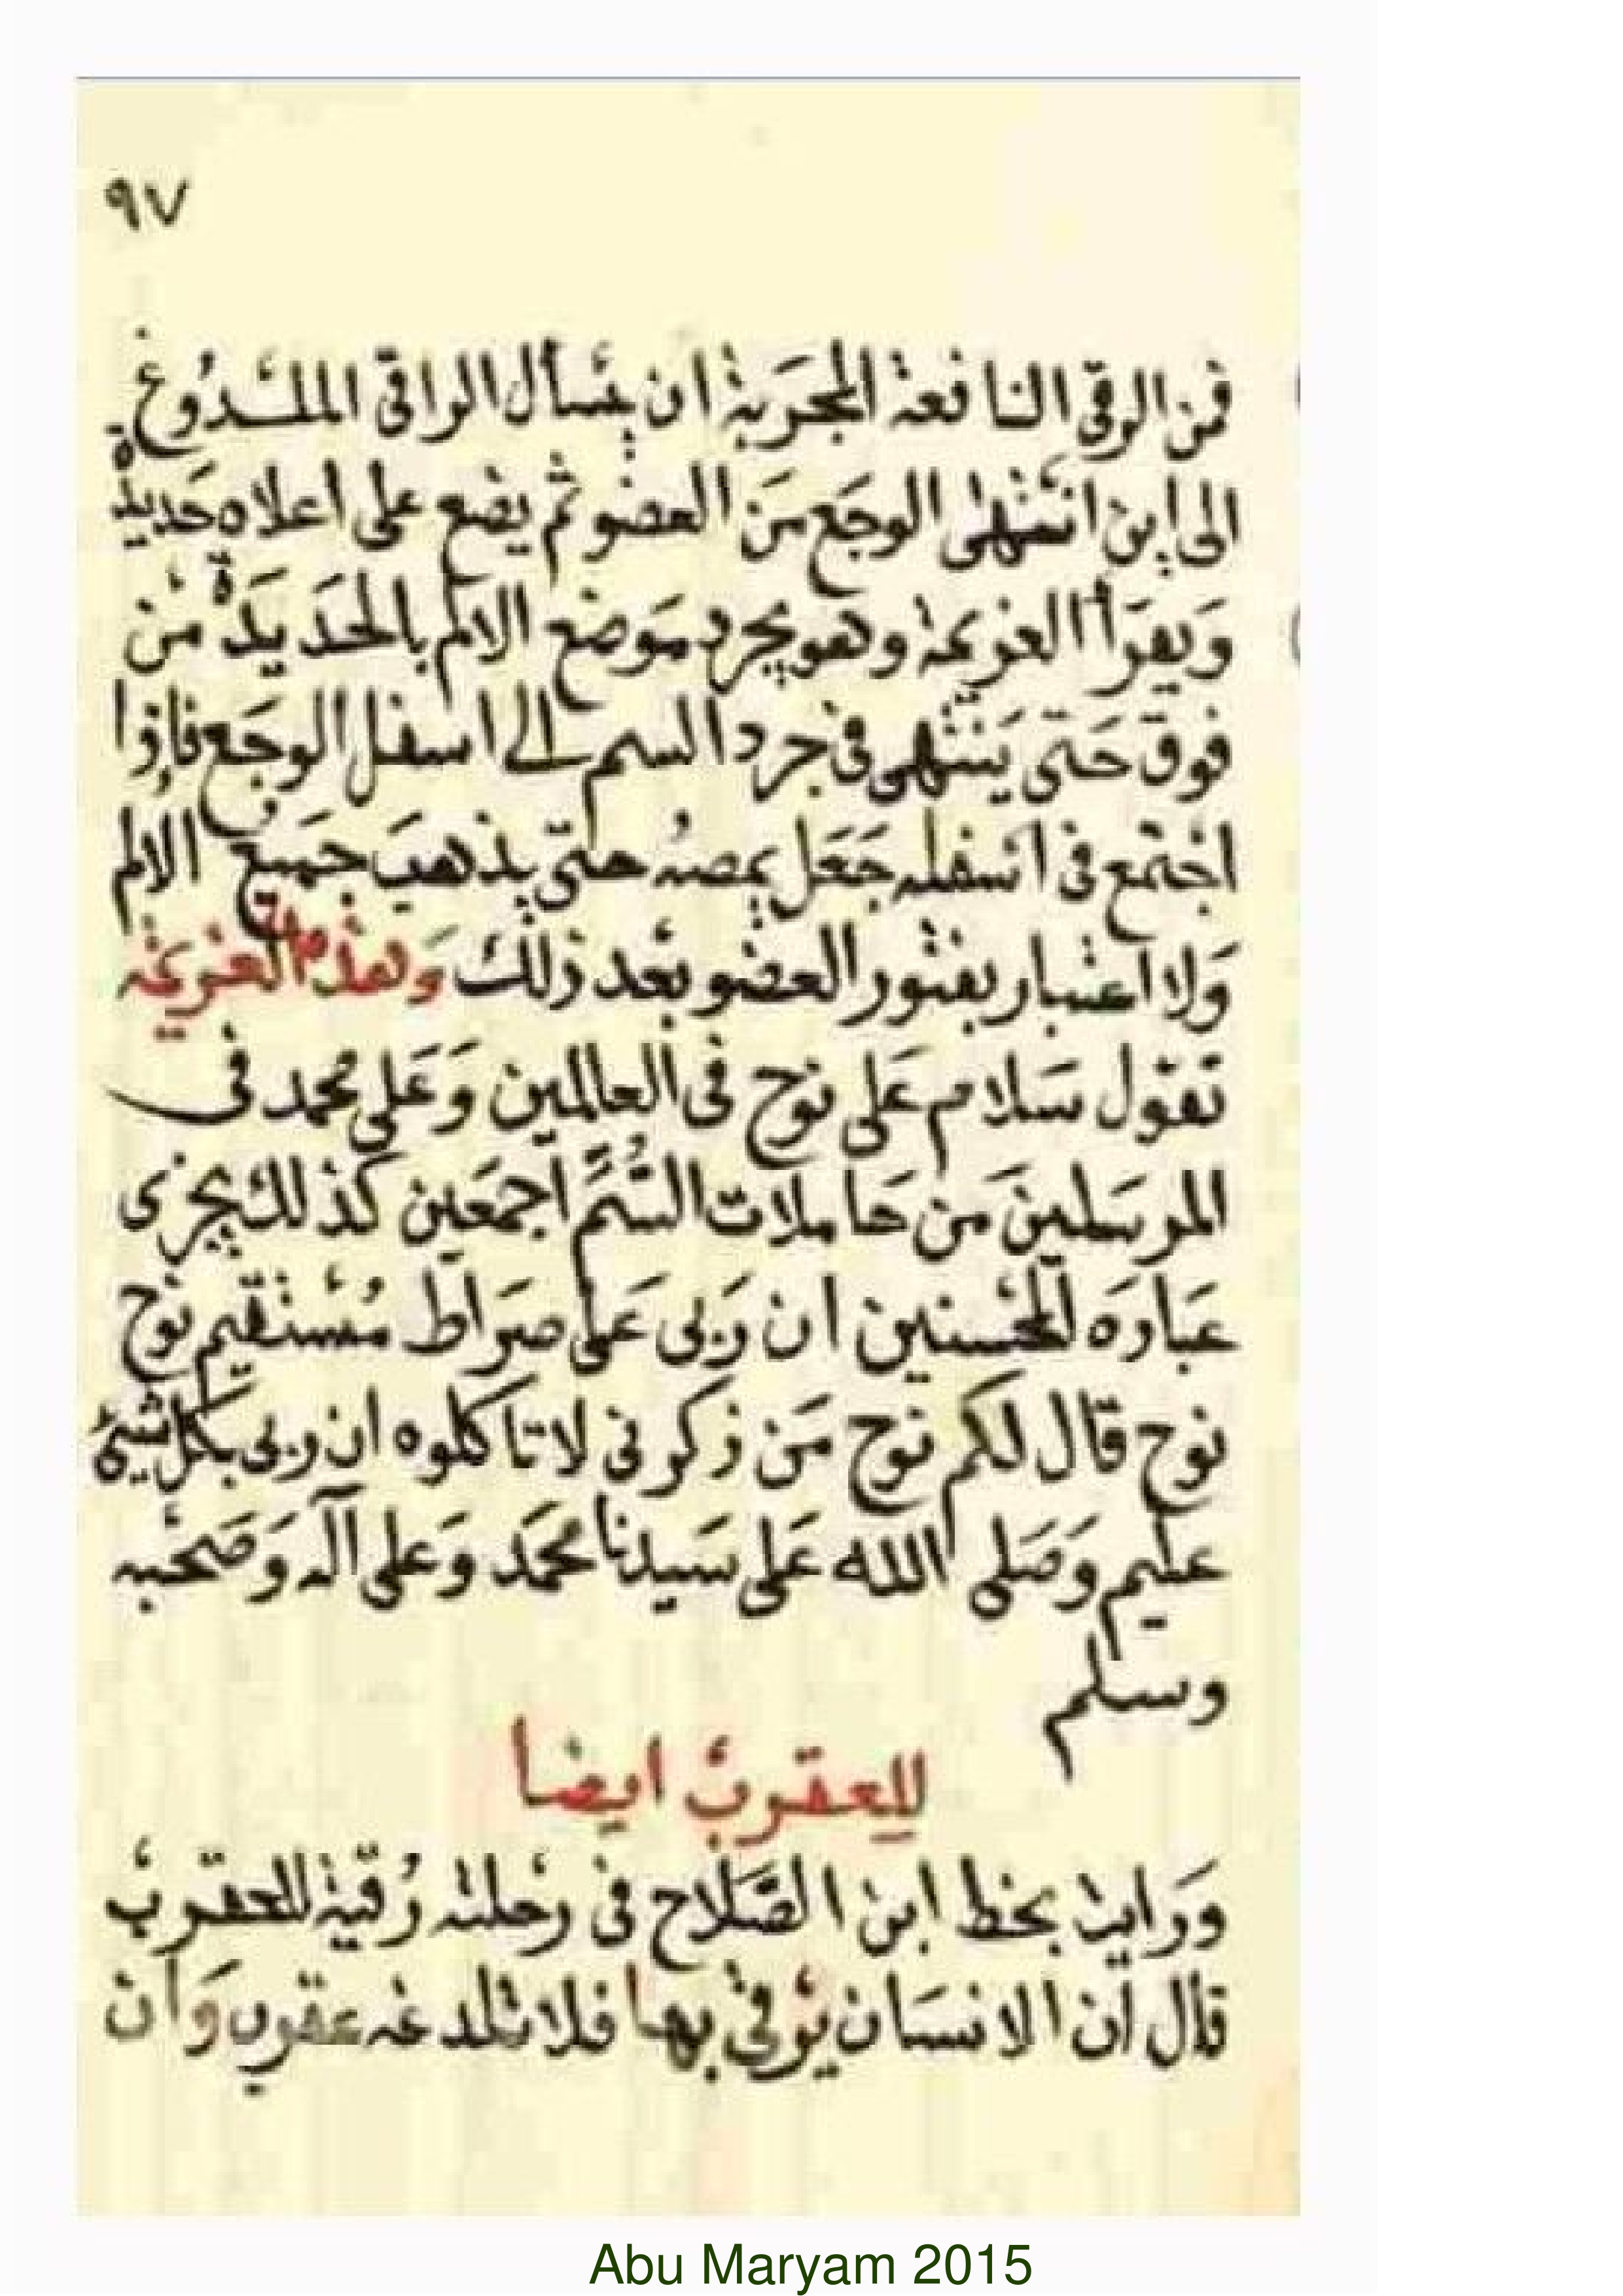 ٩٧
فمن الرقى النافعة المجربة ان يسأل الراقى الملدوغ
الى اين انتهى الوجع من العضو ثم يضع على اعلاه حديدة
ويقرأ العزيمة وهو يجرد موضع الالم بالحديدة من
فوق حتى ينتهى فى جرد السم الى اسفل الوجع فاذا
اجتمع فى اسفله جعل يمصه حتى يذهب جميع الالم
ولا اعتبار بفتور العضو بعد ذلك وهذه العزيمة
تقول سلام على نوح فى العالمين وعلى محمد فى
المرسلين من حاملات السم اجمعين كذلك يجزى
عباده المحسنين ان ربى على صراط مستقيم نوح
نوح قال لكم نوح من ذكرنى لا تاكلوه ان ربى بكل شئ
عليم وصلى الله على سيدنا محمد وعلى آله وصحبه
وسلم
للعقرب ايضا
ورايت بخط ابن الصلاح فى رحلته رقية للعقرب
قال ان الانسان يرقى بها فلا تلدغه عقرب وان
Abu Maryam 2015